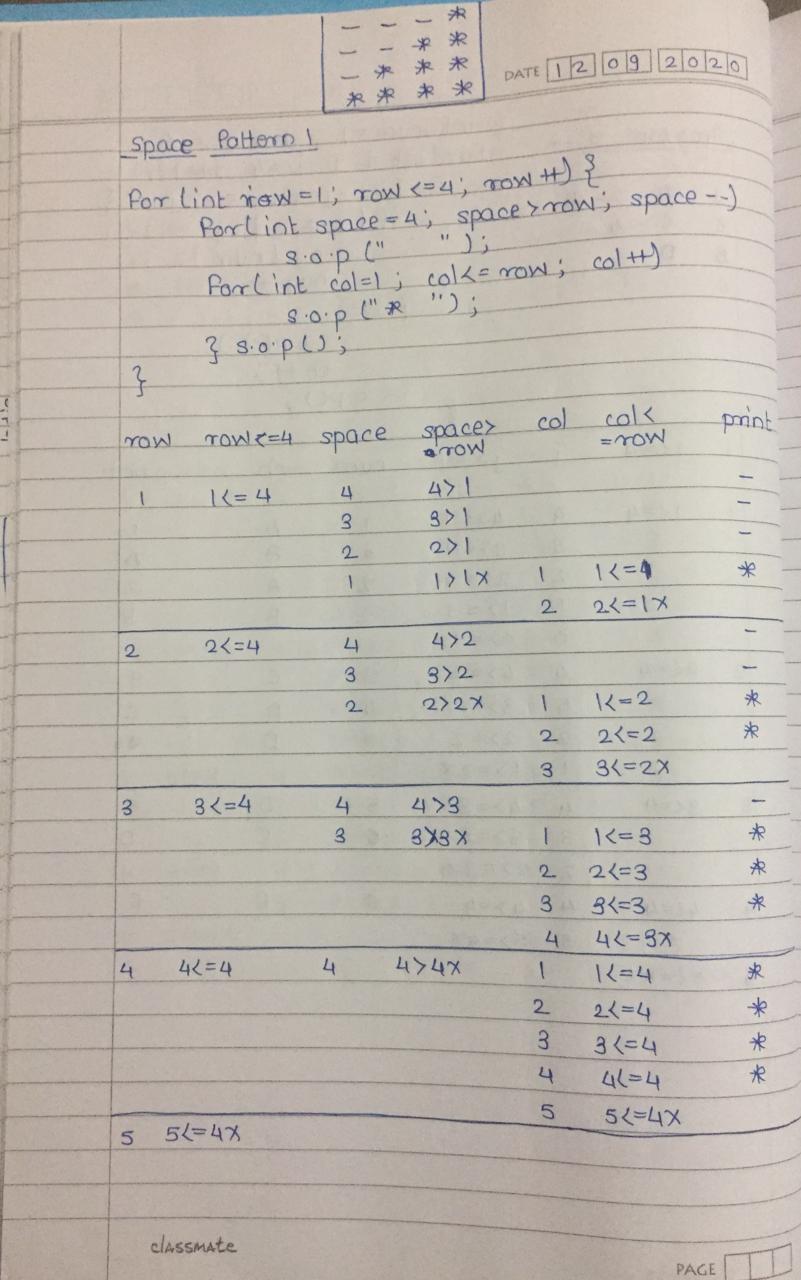 - - - *
- - * *
- * * *
* * * *
DATE 12 09 2020
Space Pattern 1
for (int row=1; row<=4; row++) {
for(int space=4; space>row; space--)
s.o.p (" ");
for(int col=1; col<=row; col++)
s.o.p ("* ");
} s.o.p();
}
row row<=4 space space>row col col<=row print
1 1<=4 4 4>1 -
3 3>1 -
2 2>1 -
1 1>1x 1 1<=1 *
2 2<=1x
2 2<=4 4 4>2 -
3 3>2 -
2 2>2x 1 1<=2 *
2 2<=2 *
3 3<=2x
3 3<=4 4 4>3 -
3 3>3x 1 1<=3 *
2 2<=3 *
3 3<=3 *
4 4<=3x
4 4<=4 4 4>4x 1 1<=4 *
2 2<=4 *
3 3<=4 *
4 4<=4 *
5 5<=4x
5 5<=4x
classmate
PAGE